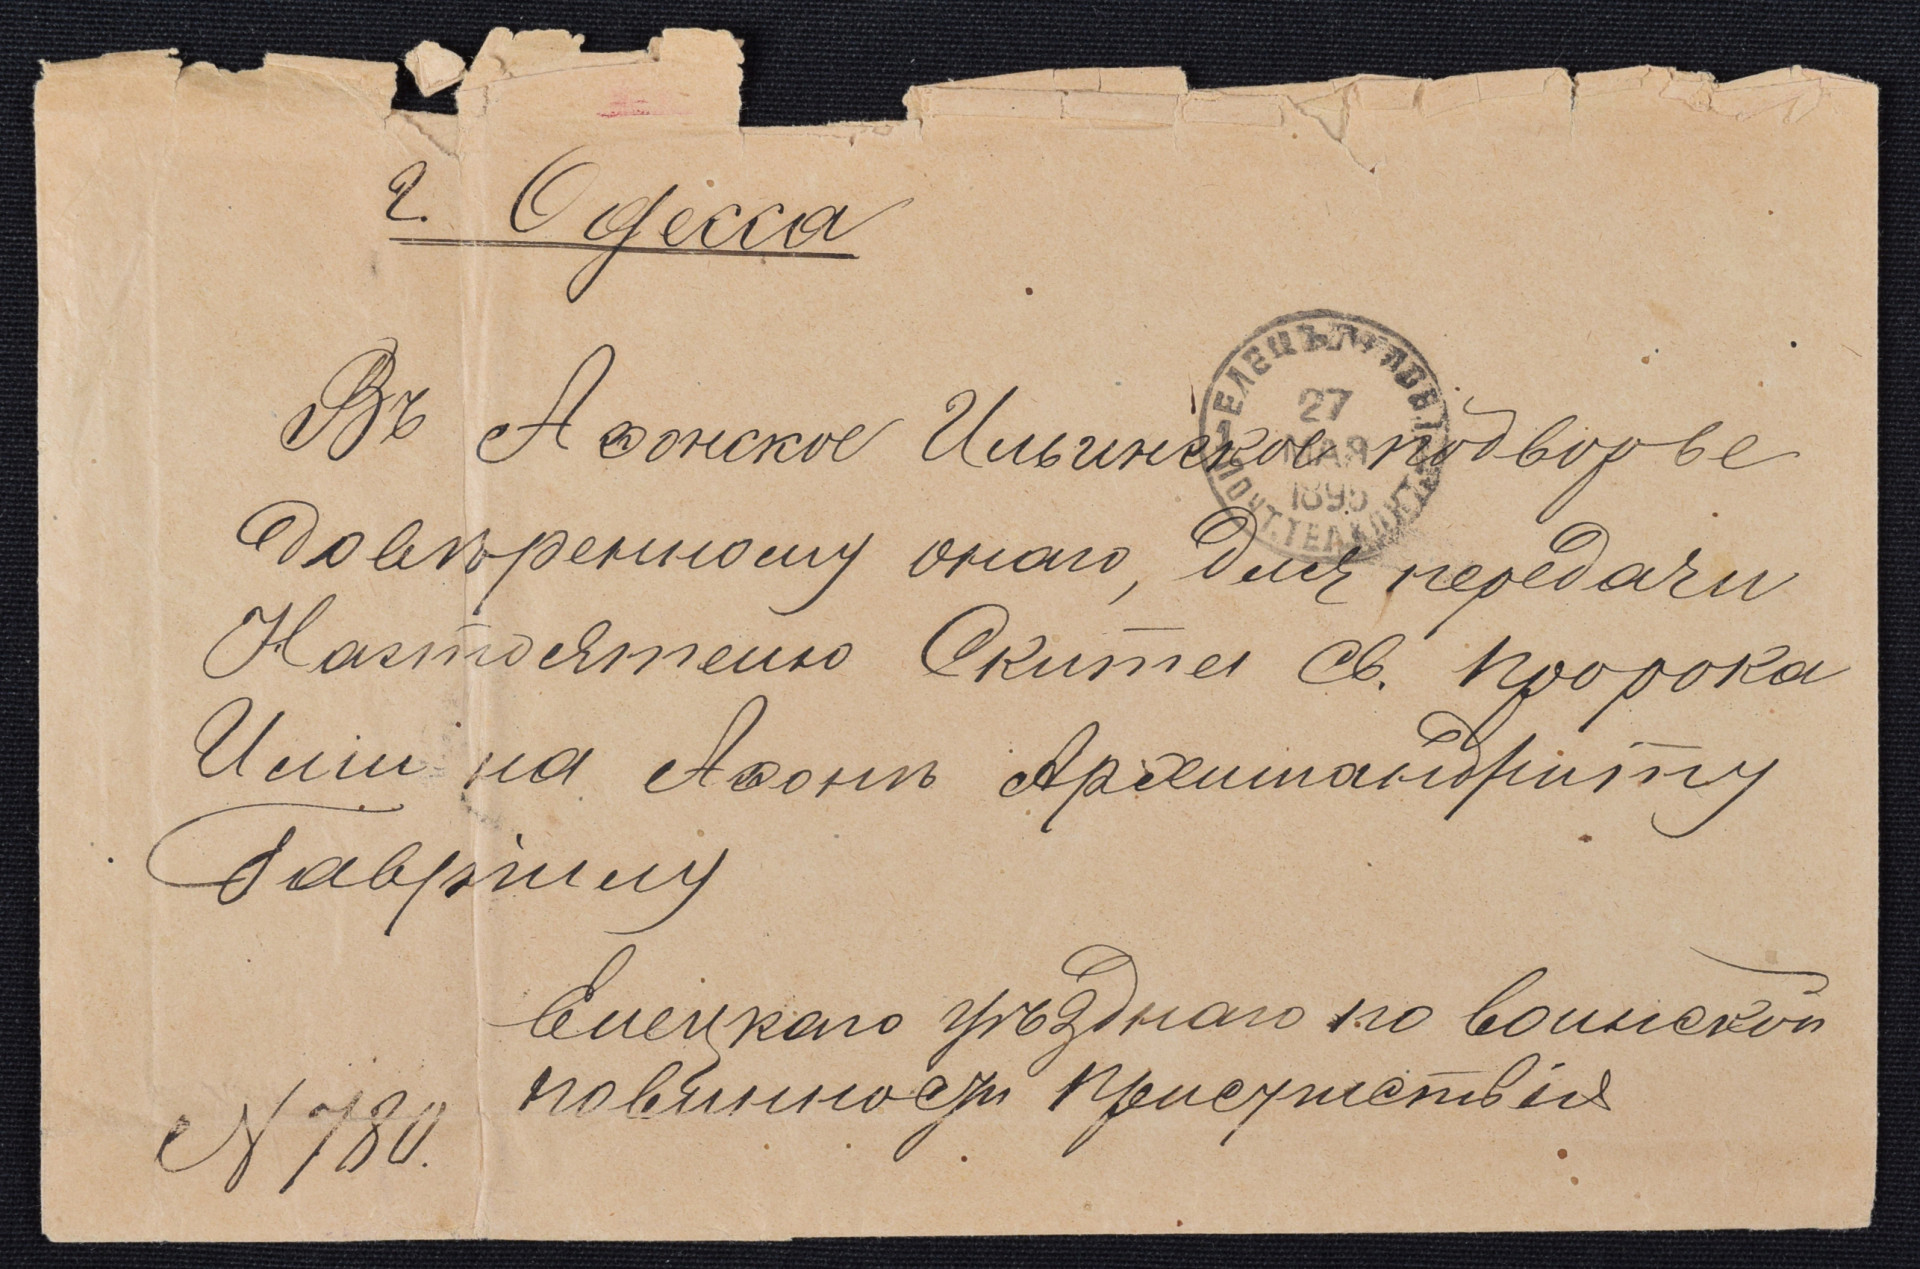 г. Одесса
ЕЛЕЦЪ
27
МАЯ
1895
ПОЧТ. ТЕЛ. КОН.
Въ Аѳонское Ильинское подворье
Довѣренному онаго, для передачи
Настоятелю Скита Св. пророка
Иліи на Аѳонѣ Архимандриту
Гавріилу
Елецкаго уѣзднаго по воинской
повинности присутствія
N 780.